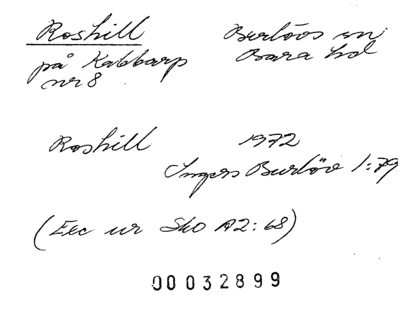 Roshill Burlövs sn
på Kabbarp Bara hd
nr 8
Roshill 1972
Ingers Burlöv 1:79
(Exc ur Sko A2:68)
00032899